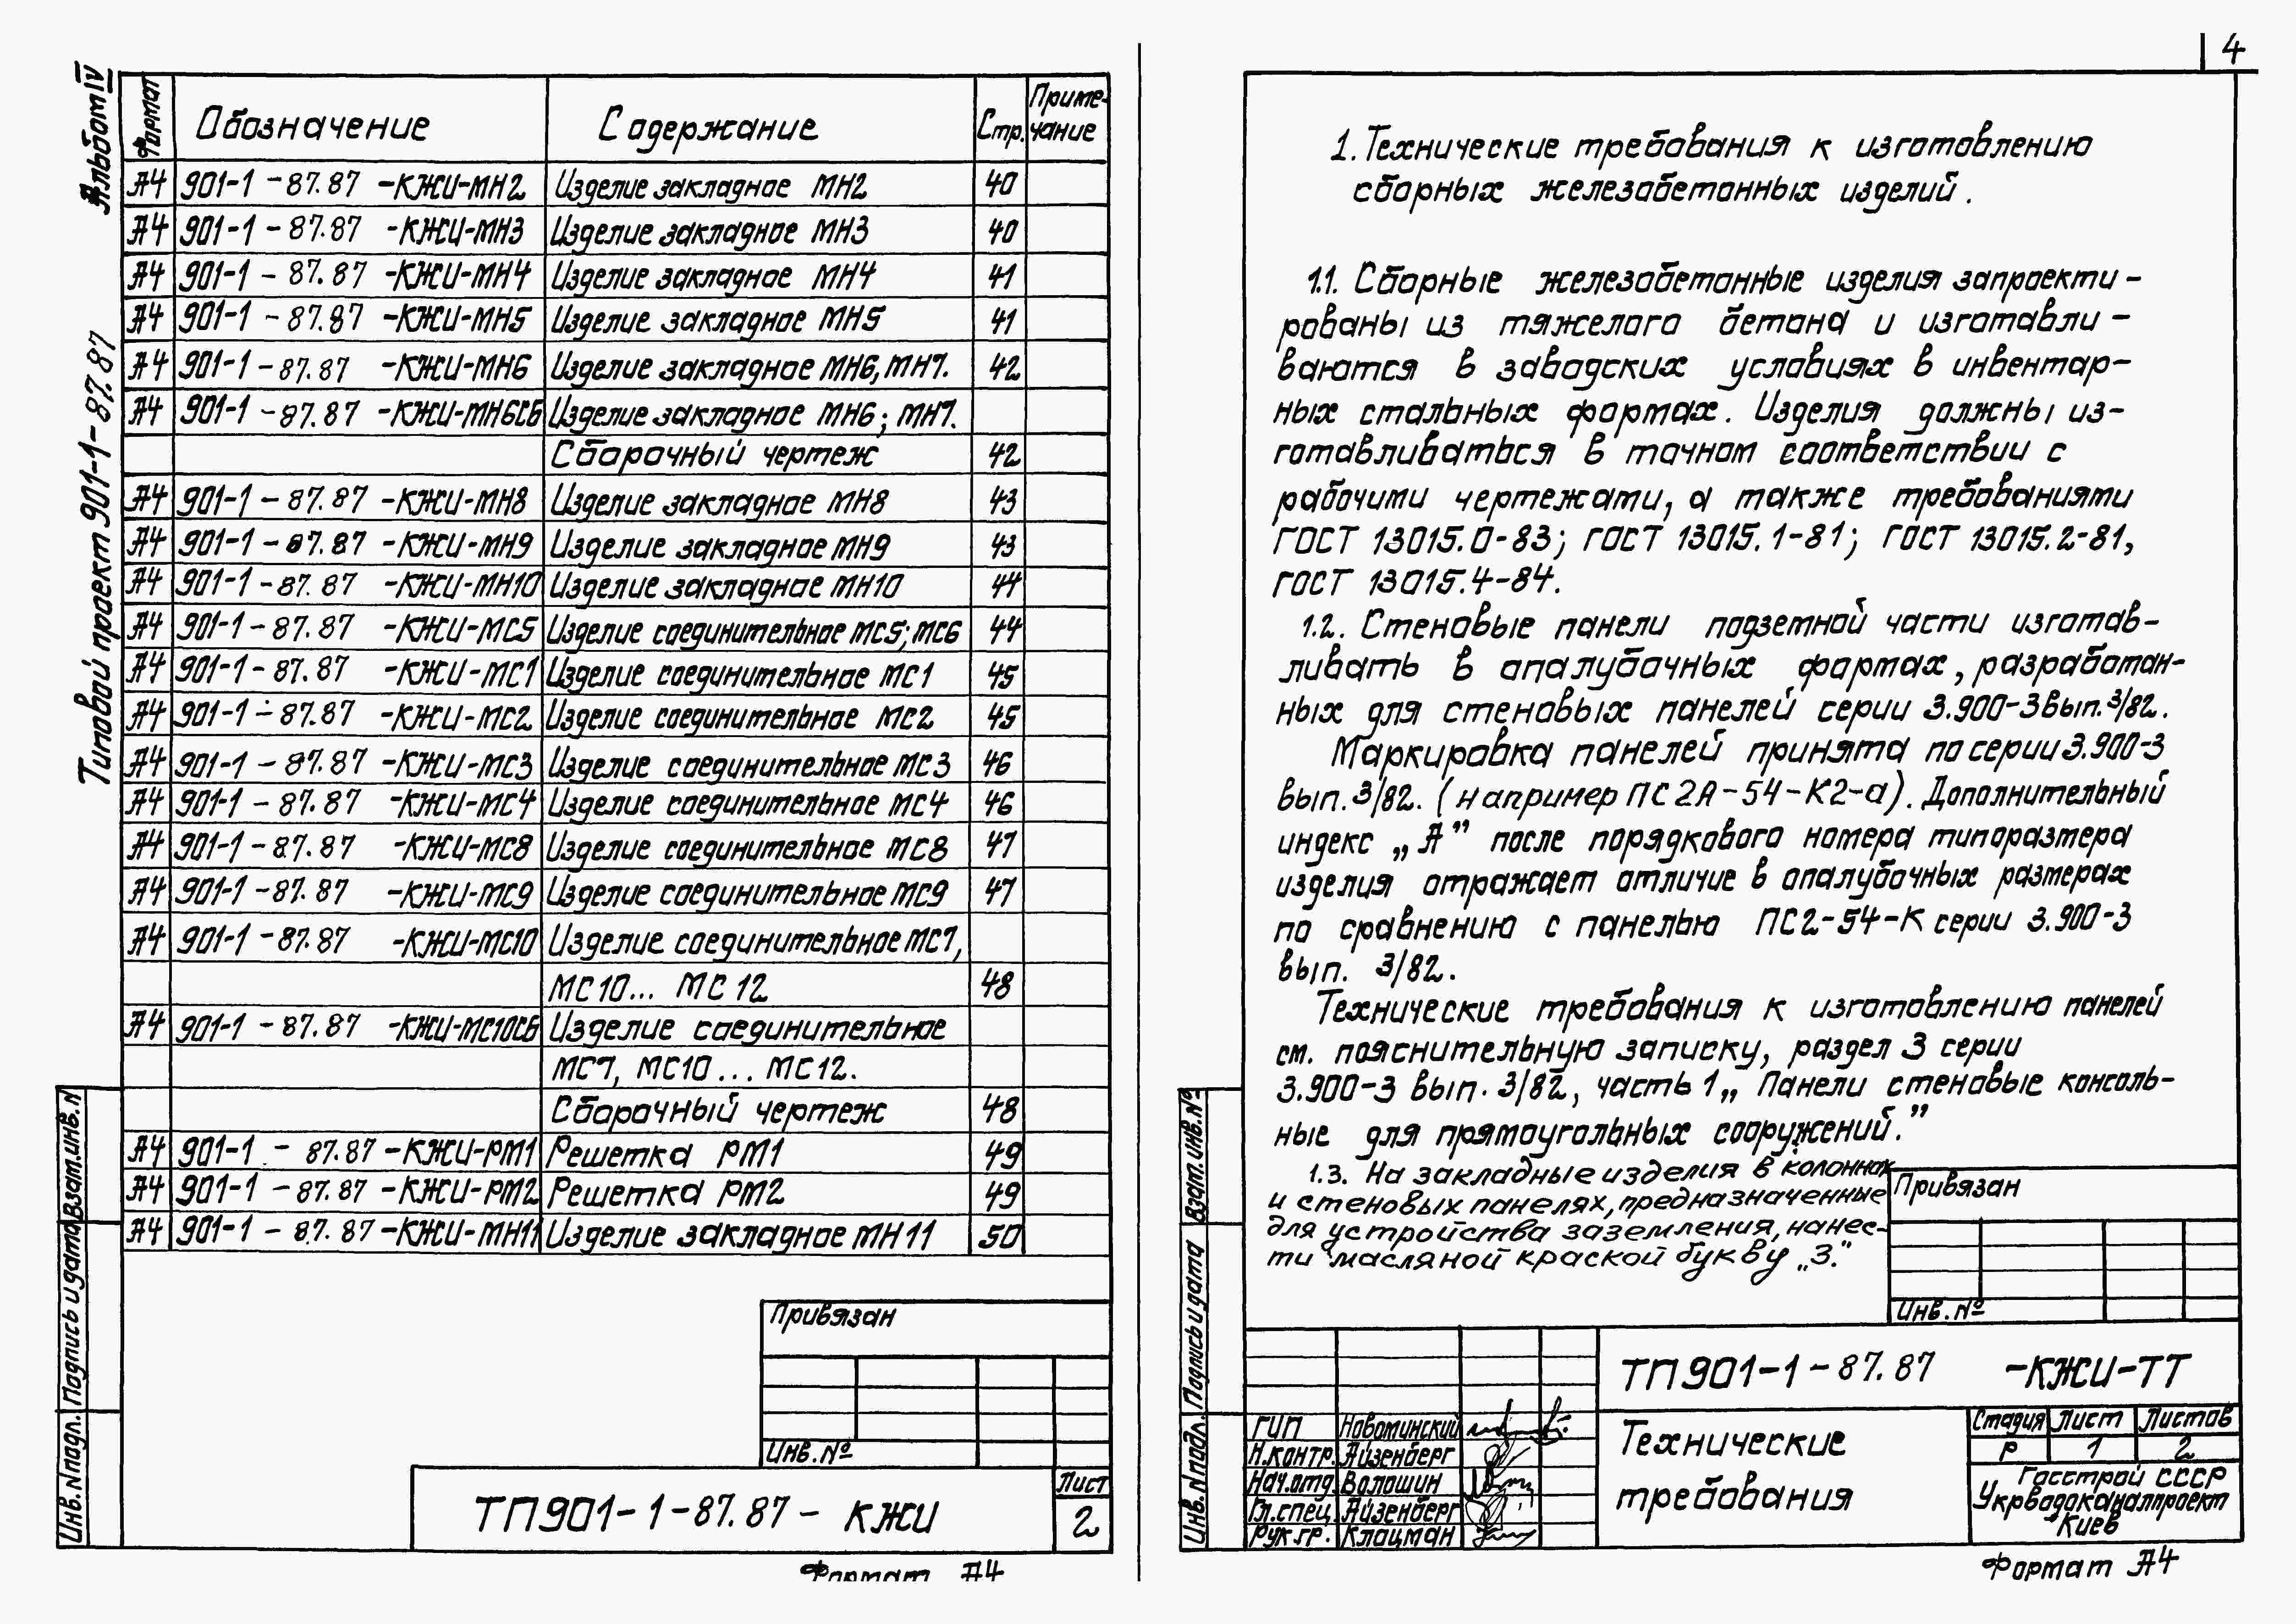 Альбом IV
Типовой проект 901-1-87.87
Формат Обозначение Содержание Стр. Приме-чание
А4 901-1-87.87-КЖИ-МН2 Изделие закладное МН2 40
А4 901-1-87.87-КЖИ-МН3 Изделие закладное МН3 40
А4 901-1-87.87-КЖИ-МН4 Изделие закладное МН4 41
А4 901-1-87.87-КЖИ-МН5 Изделие закладное МН5 41
А4 901-1-87.87-КЖИ-МН6 Изделие закладное МН6, МН7. 42
А4 901-1-87.87-КЖИ-МН6СБ Изделие закладное МН6; МН7.
Сборочный чертеж 42
А4 901-1-87.87-КЖИ-МН8 Изделие закладное МН8 43
А4 901-1-87.87-КЖИ-МН9 Изделие закладное МН9 43
А4 901-1-87.87-КЖИ-МН10 Изделие закладное МН10 44
А4 901-1-87.87-КЖИ-МС5 Изделие соединительное МС5; МС6 44
А4 901-1-87.87-КЖИ-МС1 Изделие соединительное МС1 45
А4 901-1-87.87-КЖИ-МС2 Изделие соединительное МС2 45
А4 901-1-87.87-КЖИ-МС3 Изделие соединительное МС3 46
А4 901-1-87.87-КЖИ-МС4 Изделие соединительное МС4 46
А4 901-1-87.87-КЖИ-МС8 Изделие соединительное МС8 47
А4 901-1-87.87-КЖИ-МС9 Изделие соединительное МС9 47
А4 901-1-87.87-КЖИ-МС10 Изделие соединительное МС7,
МС10... МС12 48
А4 901-1-87.87-КЖИ-МС10СБ Изделие соединительное
МС7, МС10... МС12.
Сборочный чертеж 48
А4 901-1-87.87-КЖИ-РМ1 Решетка РМ1 49
А4 901-1-87.87-КЖИ-РМ2 Решетка РМ2 49
А4 901-1-87.87-КЖИ-МН11 Изделие закладное МН11 50
Взам.инв.N
Подпись и дата
Инв.N подл.
Привязан
Инв.№
ТП901-1-87.87-КЖИ
Лист
2
Формат А4
4
1. Технические требования к изготовлению
сборных железобетонных изделий.
1.1. Сборные железобетонные изделия запроекти-
рованы из тяжелого бетона и изготавли-
ваются в заводских условиях в инвентар-
ных стальных формах. Изделия должны из-
готавливаться в точном соответствии с
рабочими чертежами, а также требованиями
ГОСТ 13015.0-83; ГОСТ 13015.1-81; ГОСТ 13015.2-81,
ГОСТ 13015.4-84.
1.2. Стеновые панели подземной части изготав-
ливать в опалубочных формах, разработан-
ных для стеновых панелей серии 3.900-3 вып. 3/82.
Маркировка панелей принята по серии 3.900-3
вып. 3/82. (например ПС2А-54-К2-а). Дополнительный
индекс „А" после порядкового номера типоразмера
изделия отражает отличие в опалубочных размерах
по сравнению с панелью ПС2-54-К серии 3.900-3
вып. 3/82.
Технические требования к изготовлению панелей
см. пояснительную записку, раздел 3 серии
3.900-3 вып. 3/82, часть 1 „ Панели стеновые консоль-
ные для прямоугольных сооружений."
1.3. На закладные изделия в колоннах
и стеновых панелях, предназначенные
для устройства заземления, нанес-
ти масляной краской букву „З."
Привязан
Инв.№
Взам.инв.№
Подпись и дата
Инв.N подл.
ТП901-1-87.87 -КЖИ-ТТ
ГИП Новоминский
Н.контр. Айзенберг
Нач.отд. Волошин
Гл.спец. Айзенберг
Рук.гр. Клацман
Технические
требования
Стадия Лист Листов
Р 1 2
Госстрой СССР
Укрводоканалпроект
Киев
Формат А4